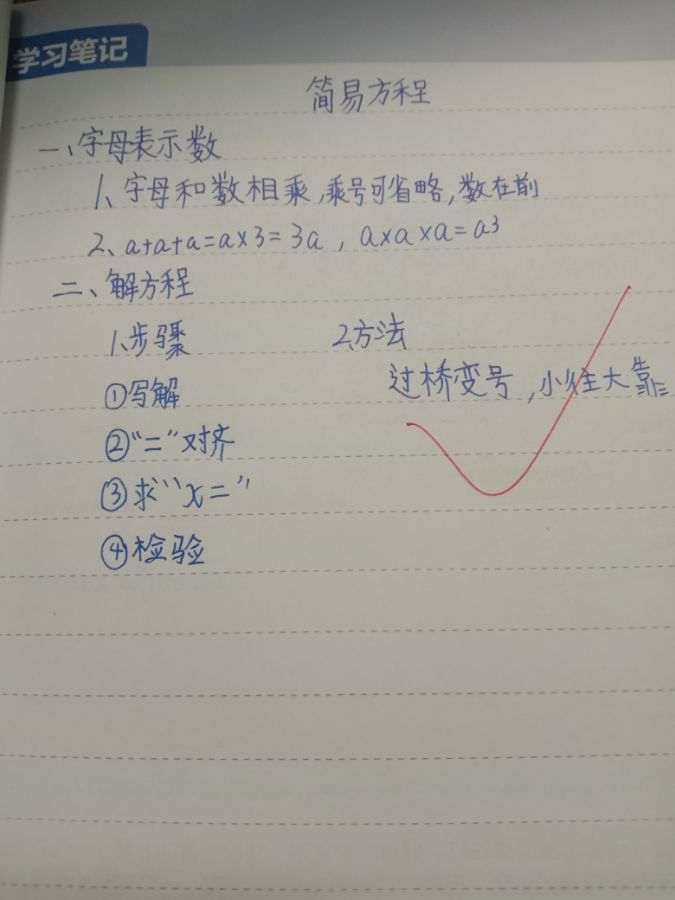 学习笔记
简易方程
一、字母表示数
1、字母和数相乘,乘号可省略,数在前
2、a+a+a=a×3=3a,a×a×a=a³
二、解方程
1、步骤 2、方法
①写解 过桥变号,小往大靠
②“=”对齐
③求“x=”
④检验